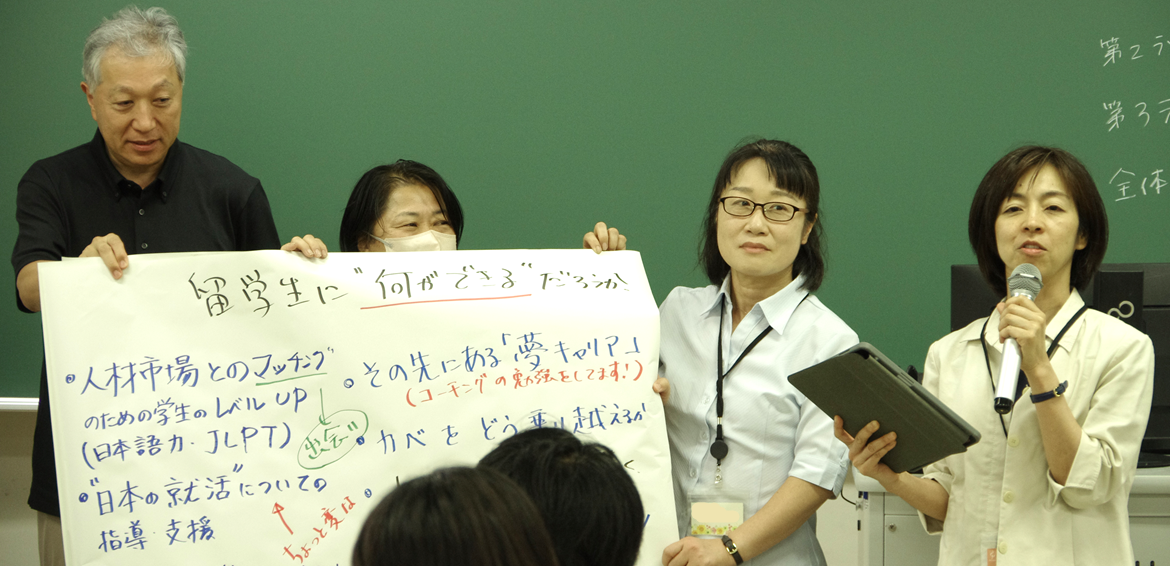 留学生に"何ができる"だろうか
・人材市場とのマッチング
のための学生のレベルUP
(日本語力・JLPT)
出会い
・"日本の就活"についての
指導・支援
ちょっと変な
・その先にある「夢・キャリア」
(コーチングの勉強をしてます!)
・カベをどう乗り越えるか
第2
第3
全体